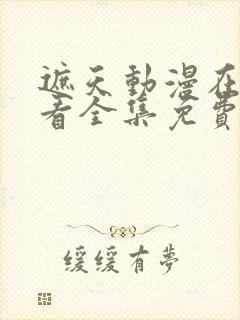 遮天動漫在
看全集免費
緩緩有夢